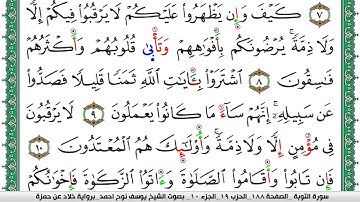 ٧ كَيْفَ وَإِن يَظْهَرُوا۟ عَلَيْكُمْ لَا يَرْقُبُوا۟ فِيكُمْ إِلًّا
وَلَا ذِمَّةً ۚ يُرْضُونَكُم بِأَفْوَٰهِهِمْ وَتَأْبَىٰ قُلُوبُهُمْ وَأَكْثَرُهُمْ
فَـٰسِقُونَ ٨ ٱشْتَرَوْا۟ بِـَٔايَـٰتِ ٱللَّهِ ثَمَنًا قَلِيلًا فَصَدُّوا۟
عَن سَبِيلِهِۦٓ ۚ إِنَّهُمْ سَآءَ مَا كَانُوا۟ يَعْمَلُونَ ٩ لَا يَرْقُبُونَ
فِى مُؤْمِنٍ إِلًّا وَلَا ذِمَّةً ۚ وَأُو۟لَـٰٓئِكَ هُمُ ٱلْمُعْتَدُونَ ١٠
فَإِن تَابُوا۟ وَأَقَامُوا۟ ٱلصَّلَوٰةَ وَءَاتَوُا۟ ٱلزَّكَوٰةَ فَإِخْوَٰنُكُمْ
سورة التوبة _ الصفحة ١٨٨ _ الحزب ١٩ _ الجزء ١٠ _ بصوت الشيخ يوسف نوح احمد _ برواية خلاد عن حمزة